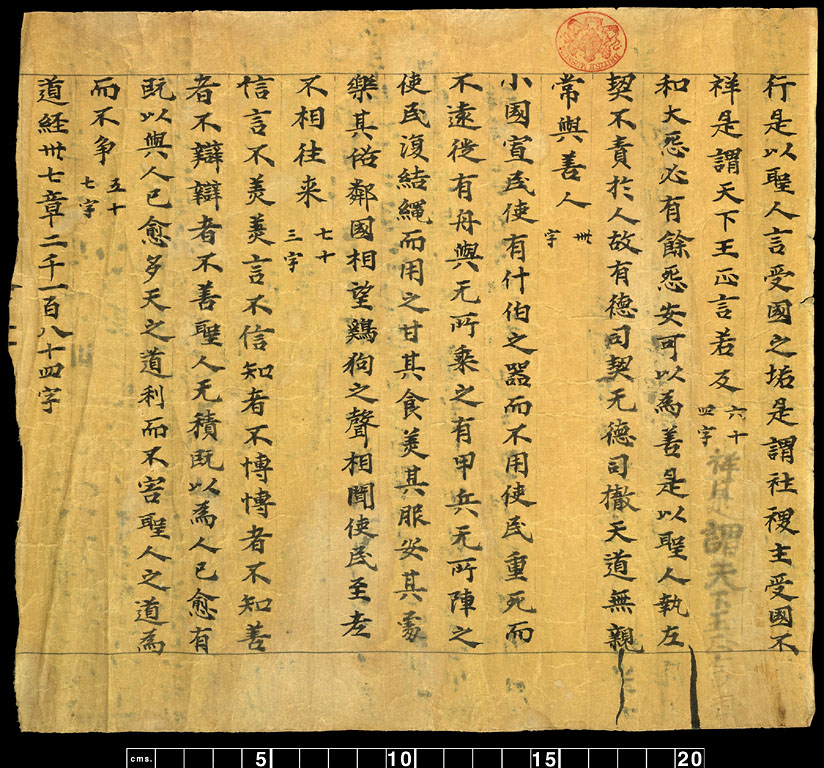 行是以聖人言受國之垢是謂社稷主受國不
祥是謂天下王正言若反 六十四字
祥是謂天下王正言
和大怨必有餘怨安可以為善是以聖人執左
契不責於人故有德司契无德司撤天道無親
常與善人 卌字
小國寡民使有什伯之器而不用使民重死而
不遠徙有舟輿无所乘之有甲兵无所陣之
使民復結繩而用之甘其食美其服安其處
樂其俗鄰國相望鷄狗之聲相聞使民至老
不相往来 七十三字
信言不美美言不信知者不博博者不知善
者不辯辯者不善聖人无積既以為人已愈有
既以與人已愈多天之道利而不害聖人之道為
而不争 五十七字
道經卌七章二千一百八十四字
cms. 5 10 15 20